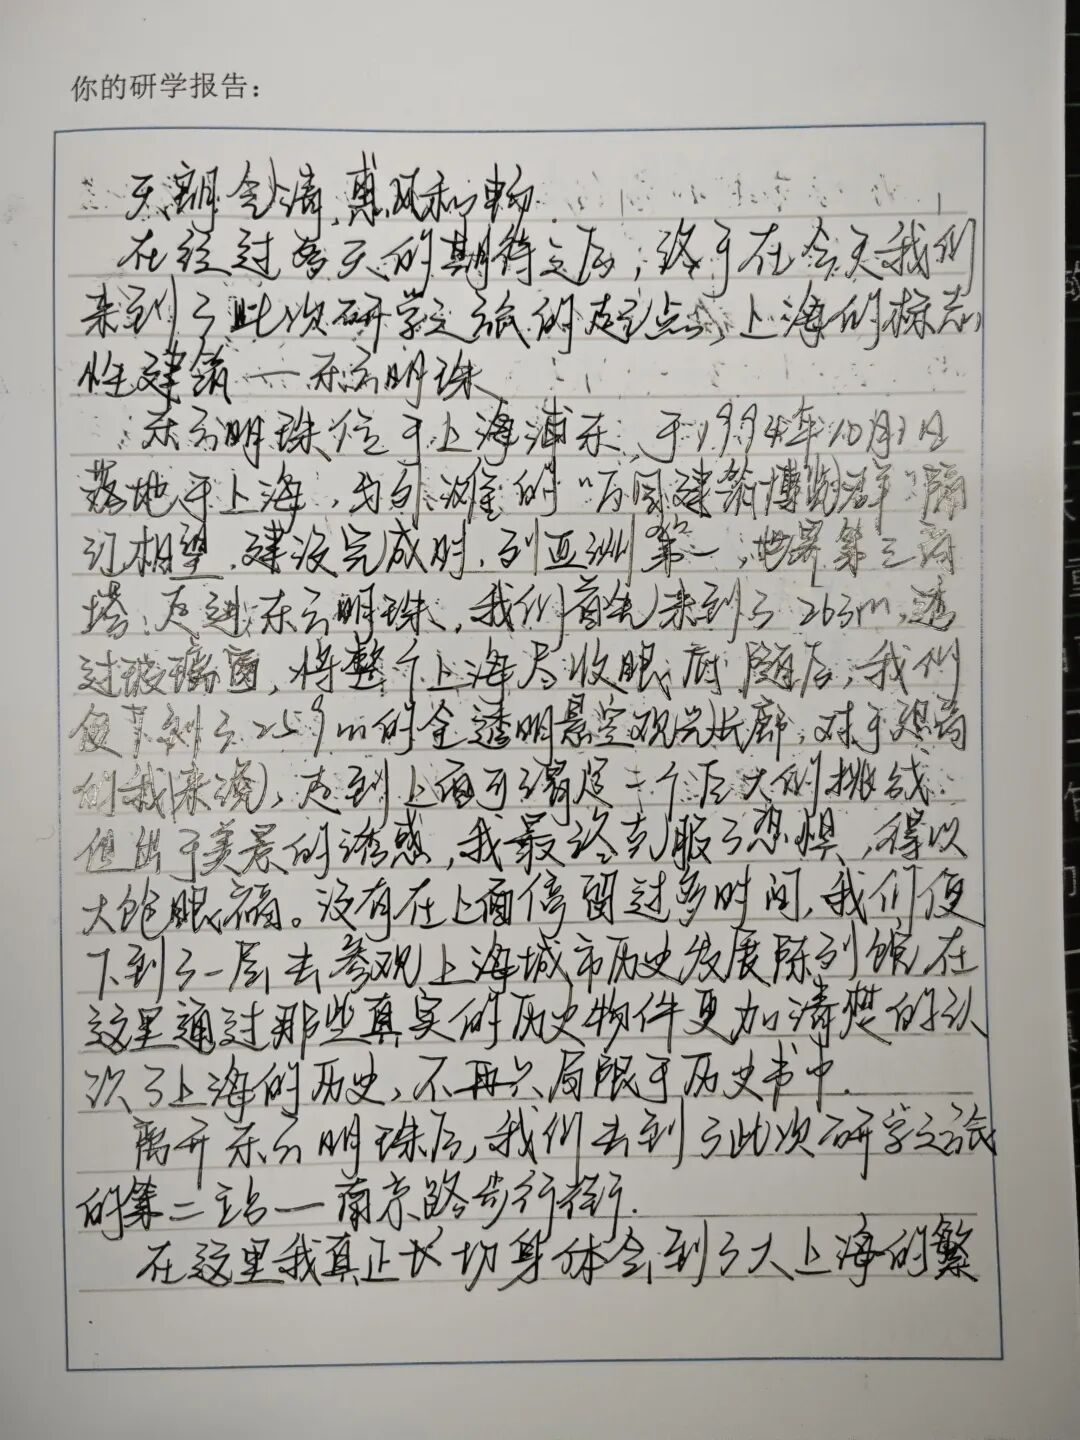 你的研学报告：
天朗气清，惠风和畅.
在经过多天的期待之后，终于在今天我们
来到了此次研学之旅的起点，上海的标志
性建筑—东方明珠
东方明珠位于上海浦东，于1994年10月1日
落地于上海，与外滩的"万国建筑博览群"隔
江相望，建设完成时，列亚洲第一，世界第三高
塔，走进东方明珠，我们首先来到了263m，透
过玻璃窗，将整个上海尽收眼底，随后，我们
便下到了259m的全透明悬空观光长廊，对于恐高
的我来说，走到上面可谓是一个巨大的挑战.
但出于美景的诱惑，我最终克服了恐惧，得以
大饱眼福。没有在上面停留过多时间，我们便
下到了一层，去参观上海城市历史发展陈列馆，在
这里通过那些真实的历史物件更加清楚的认
次了上海的历史，不再只局限于历史书中.
离开东方明珠后，我们去到了此次研学之旅
的第二站—南京路步行街.
在这里我真正切身体会到了大上海的繁